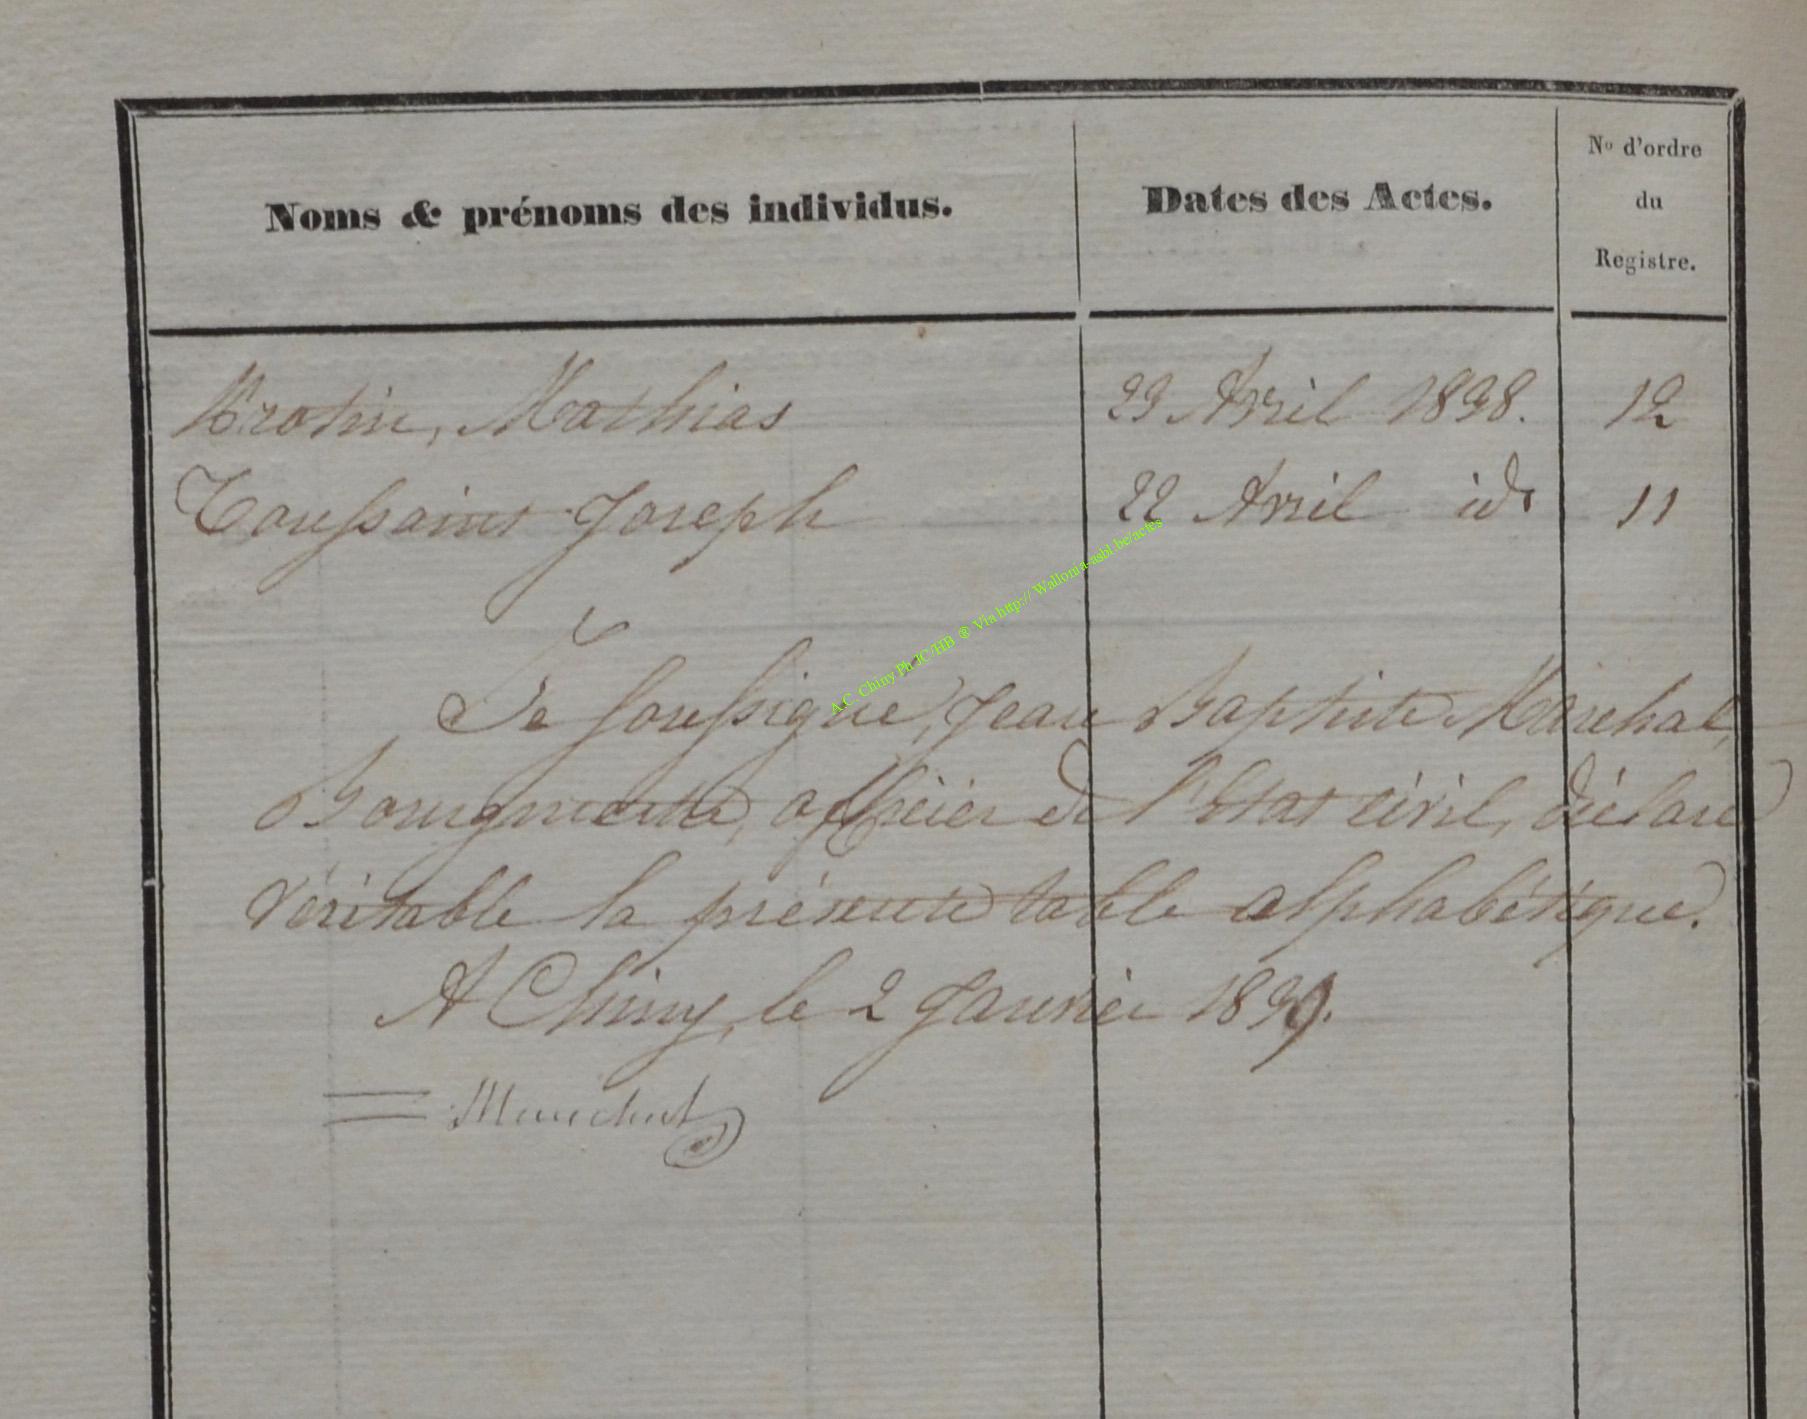 Noms & prénoms des individus.
Dates des Actes.
Nº d'ordre
du
Registre.
Mathias 23 Avril 1838. 12
Toussaint Joseph 22 Avril id. 11
Je soussigné, Jean Baptiste Maréchal,
Bourgmestre, officier de l'Etat civil, déclare
véritable la présente table alphabétique.
A Chiny, le 2 Janvier 1839.
Maréchal
A.C. Chiny Ph JC/HB ® Via http:// Wallonia-asbl.be/actes